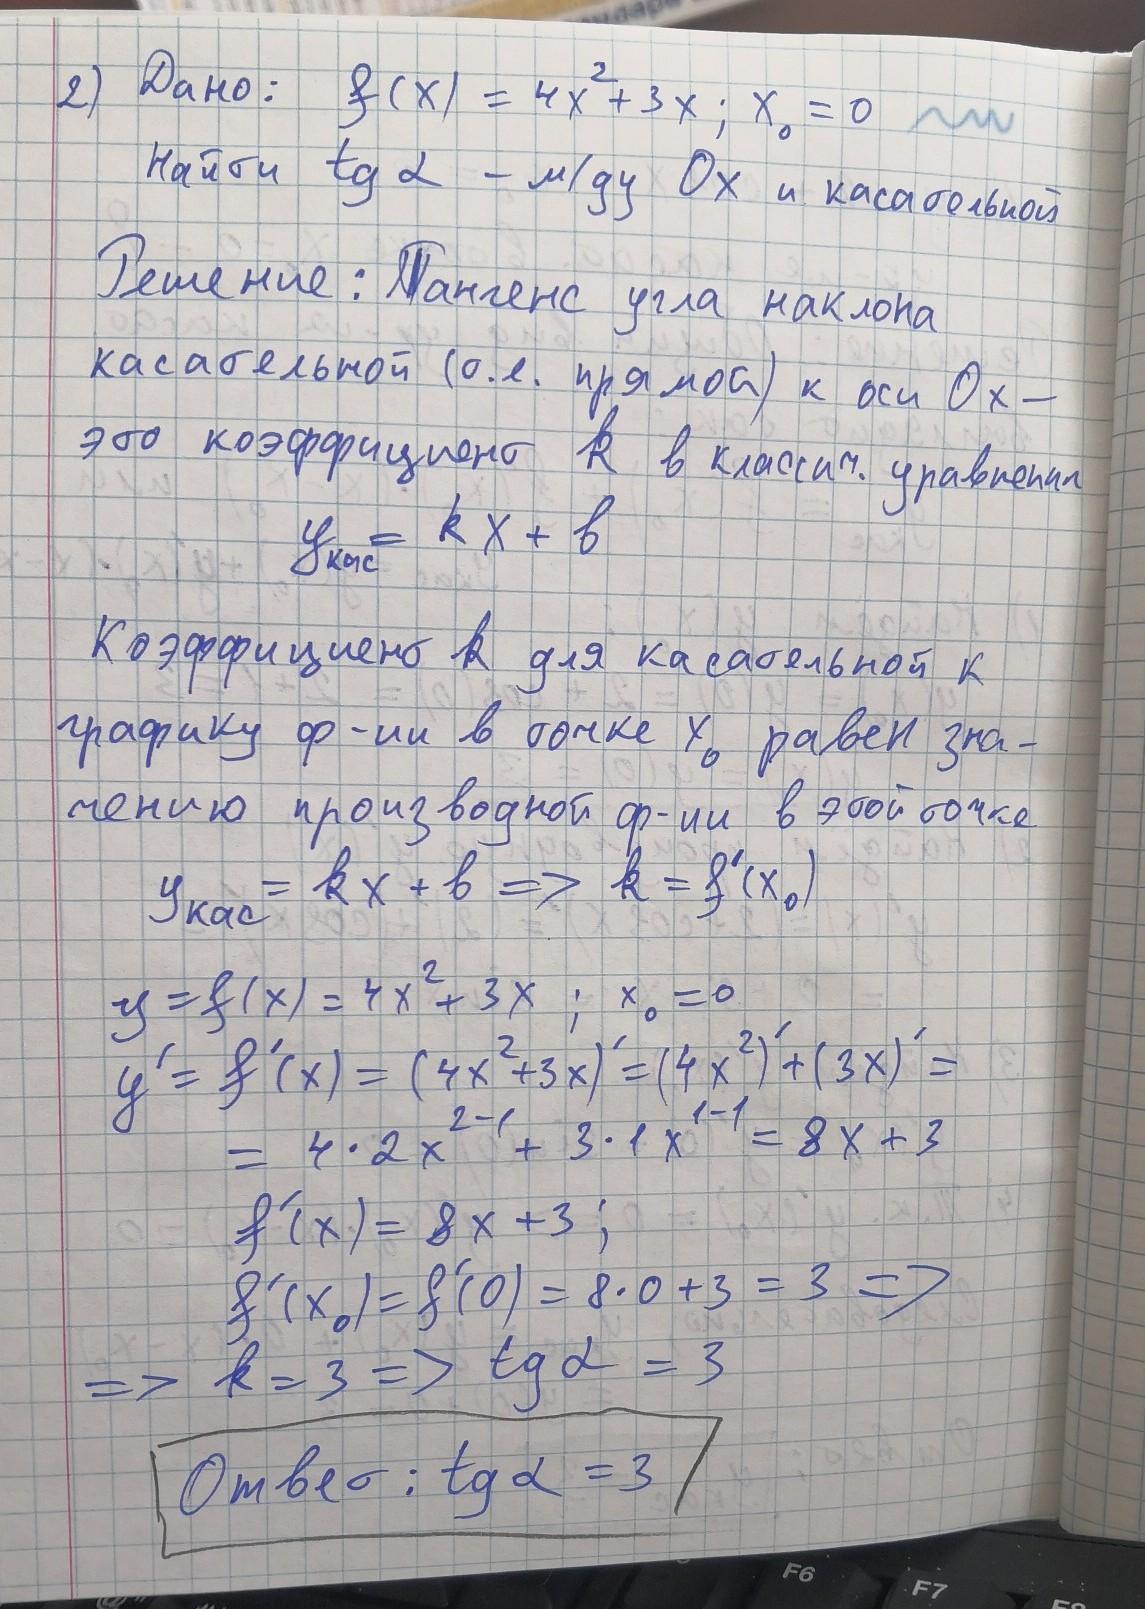 2) Дано: f(x) = 4x² + 3x; x₀ = 0
Найти tg α - м/ду Ox и касательной
Решение: Тангенс угла наклона
касательной (т.е. прямой) к оси Ox —
это коэффициент k в классич. уравнении
y кас = kx + b
Коэффициент k для касательной к
графику ф-ии в точке x₀ равен зна-
чению производной ф-ии в этой точке
y кас = kx + b => k = f'(x₀)
y = f(x) = 4x² + 3x ; x₀ = 0
y' = f'(x) = (4x² + 3x)' = (4x²)' + (3x)' =
= 4·2x²⁻¹ + 3·1x¹⁻¹ = 8x + 3
f'(x) = 8x + 3;
f'(x₀) = f'(0) = 8·0 + 3 = 3 =>
=> k = 3 => tg α = 3
Ответ: tg α = 3
F6
F7